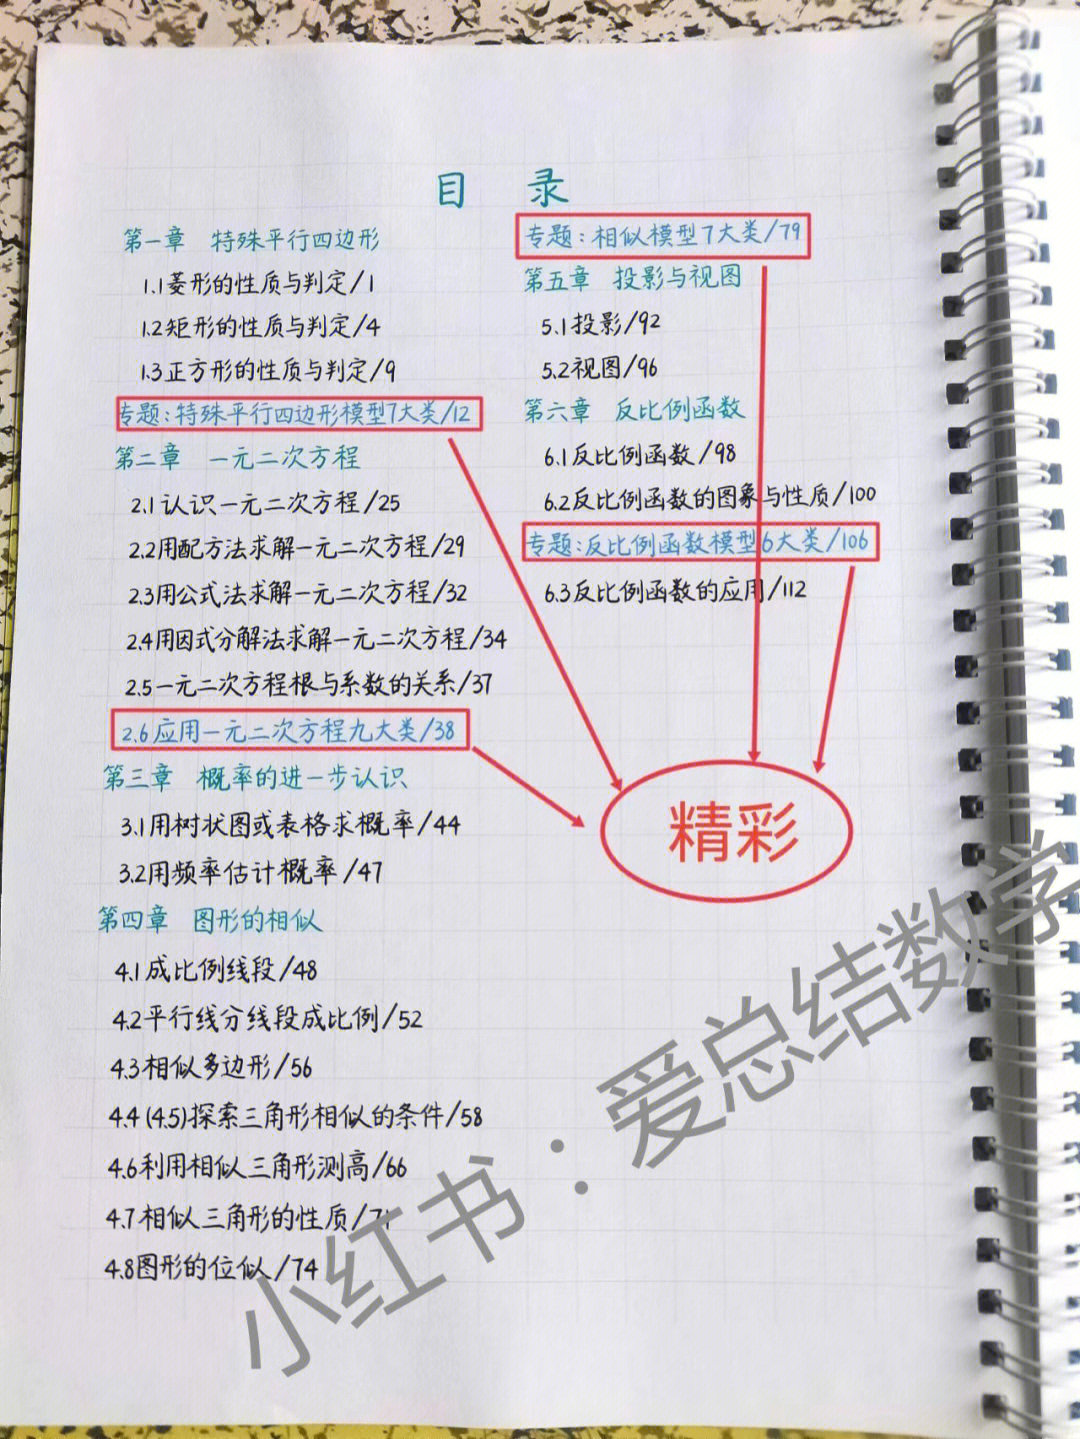 目 录
第一章 特殊平行四边形
1.1菱形的性质与判定/1
1.2矩形的性质与判定/4
1.3正方形的性质与判定/9
专题:特殊平行四边形模型7大类/12
第二章 一元二次方程
2.1认识一元二次方程/25
2.2用配方法求解一元二次方程/29
2.3用公式法求解一元二次方程/32
2.4用因式分解法求解一元二次方程/34
2.5一元二次方程根与系数的关系/37
2.6应用一元二次方程九大类/38
第三章 概率的进一步认识
3.1用树状图或表格求概率/44
3.2用频率估计概率/47
第四章 图形的相似
4.1成比例线段/48
4.2平行线分线段成比例/52
4.3相似多边形/56
4.4(4.5)探索三角形相似的条件/58
4.6利用相似三角形测高/66
4.7相似三角形的性质/71
4.8图形的位似/74
专题:相似模型7大类/79
第五章 投影与视图
5.1投影/92
5.2视图/96
第六章 反比例函数
6.1反比例函数/98
6.2反比例函数的图象与性质/100
专题:反比例函数模型6大类/106
6.3反比例函数的应用/112
精彩
小红书：爱总结数学